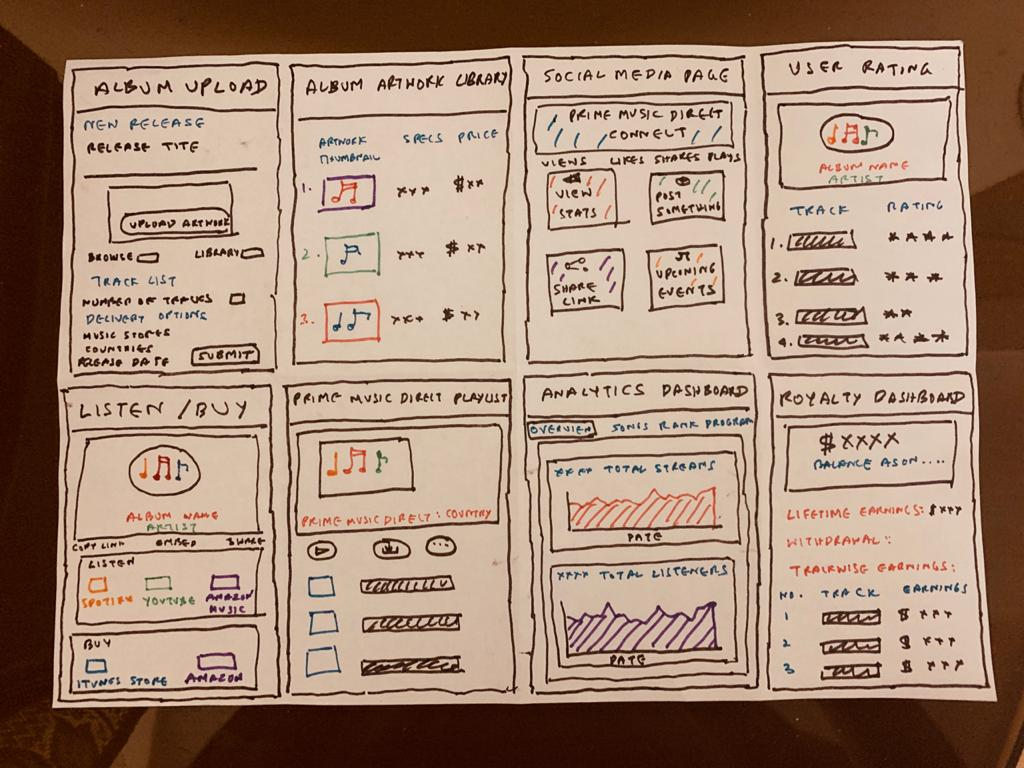 ALBUM UPLOAD
NEW RELEASE
RELEASE TITE
UPLOAD ARTWORK
BROWSE
LIBRARY
TRACK LIST
NUMBER OF TRACKS
DELIVERY OPTIONS
MUSIC STORES
COUNTRIES
RELEASE DATE
SUBMIT
ALBUM ARTWORK LIBRARY
ARTWORK THUMBNAIL
SPECS
PRICE
1. xxx $xx
2. xxx $xx
3. xxx $xx
SOCIAL MEDIA PAGE
PRIME MUSIC DIRECT
CONNECT
VIEWS LIKES SHARES PLAYS
VIEW
STATS
POST
SOMETHING
SHARE
LINK
UPCOMING
EVENTS
USER RATING
ALBUM NAME
ARTIST
TRACK RATING
1. ****
2. ***
3. **
4. ****
LISTEN/BUY
ALBUM NAME
ARTIST
COPY LINK EMBED SHARE
LISTEN
SPOTIFY
YOUTUBE
AMAZON
MUSIC
BUY
ITUNES STORE
AMAZON
PRIME MUSIC DIRECT PLAYLIST
PRIME MUSIC DIRECT: COUNTRY
ANALYTICS DASHBOARD
OVERVIEW SONGS RANK PROGRAM
xxxx TOTAL STREAMS
DATE
xxxx TOTAL LISTENERS
DATE
ROYALTY DASHBOARD
$ XXXX
BALANCE AS ON....
LIFETIME EARNINGS: $xxx
WITHDRAWAL:
TRACKWISE EARNINGS:
NO. TRACK EARNINGS
1 $ xxx
2 $ xxx
3 $ xxx